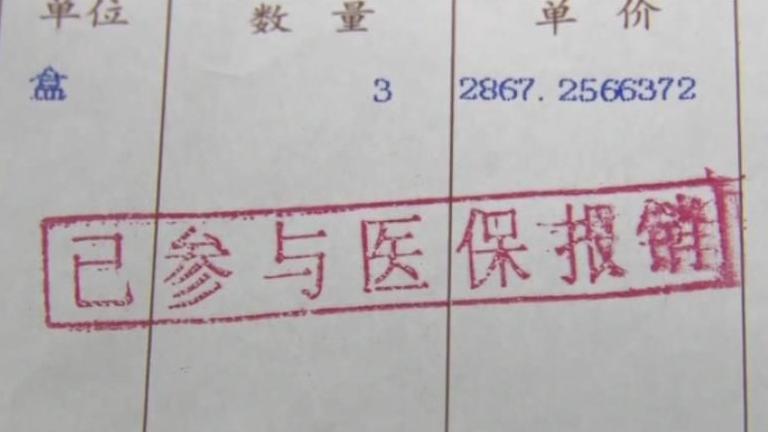 单位 数量 单价
盒 3 2867.2566372
已参与医保报销